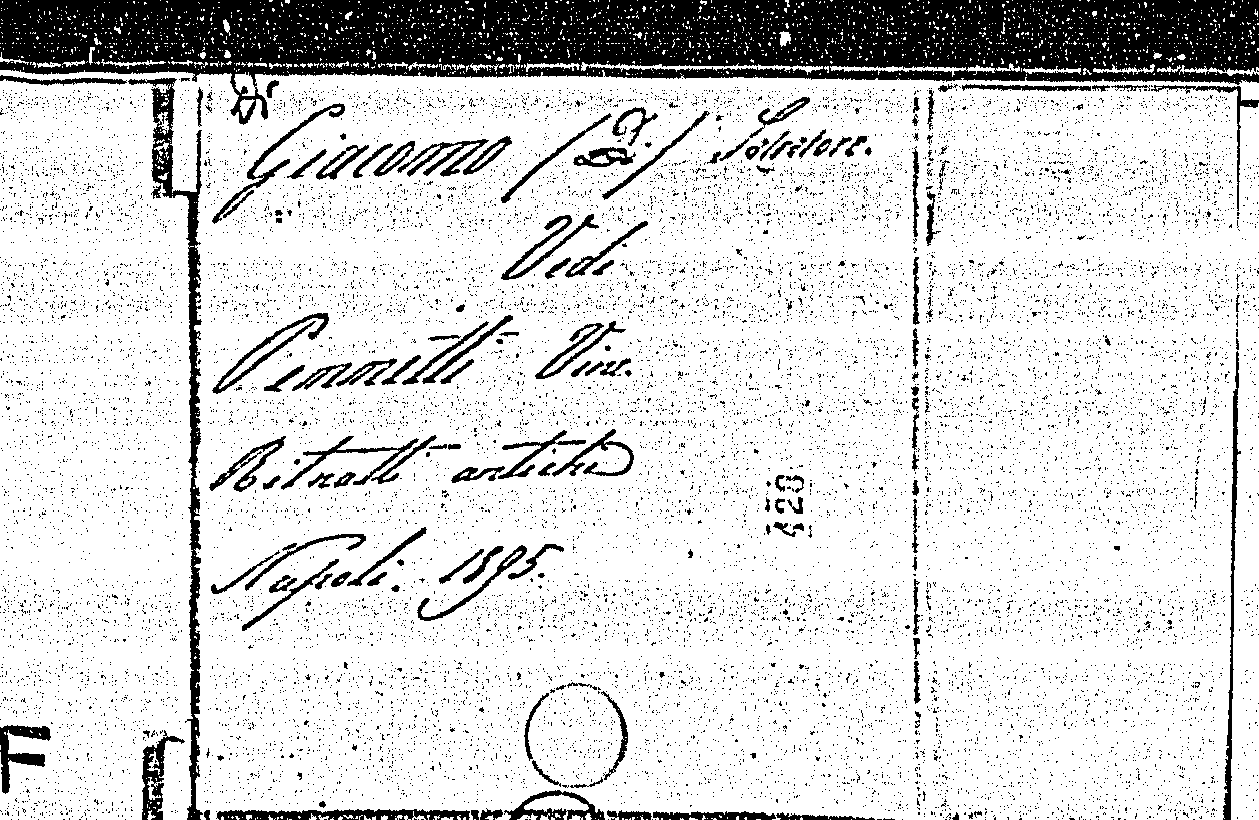 Di
Giacomo (Di) Salvatore.
Vedi
Vemmetti Vinc.
Ritratti antichi
Napoli. 1895.
428
F